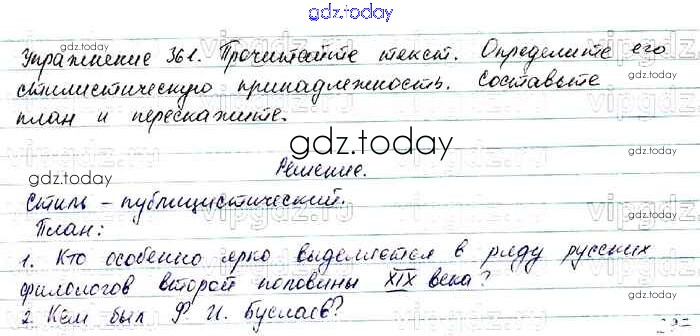 gdz.today
Упражнение 361. Прочитайте текст. Определите его
стилистическую принадлежность. Составьте
план и перескажите.
gdz.today
Решение.
gdz.today
Стиль – публицистический.
План:
1. Кто особенно ярко выделяется в ряду русских
филологов второй половины XIX века?
2. Кем был Ф. И. Буслаев?
gdz.today